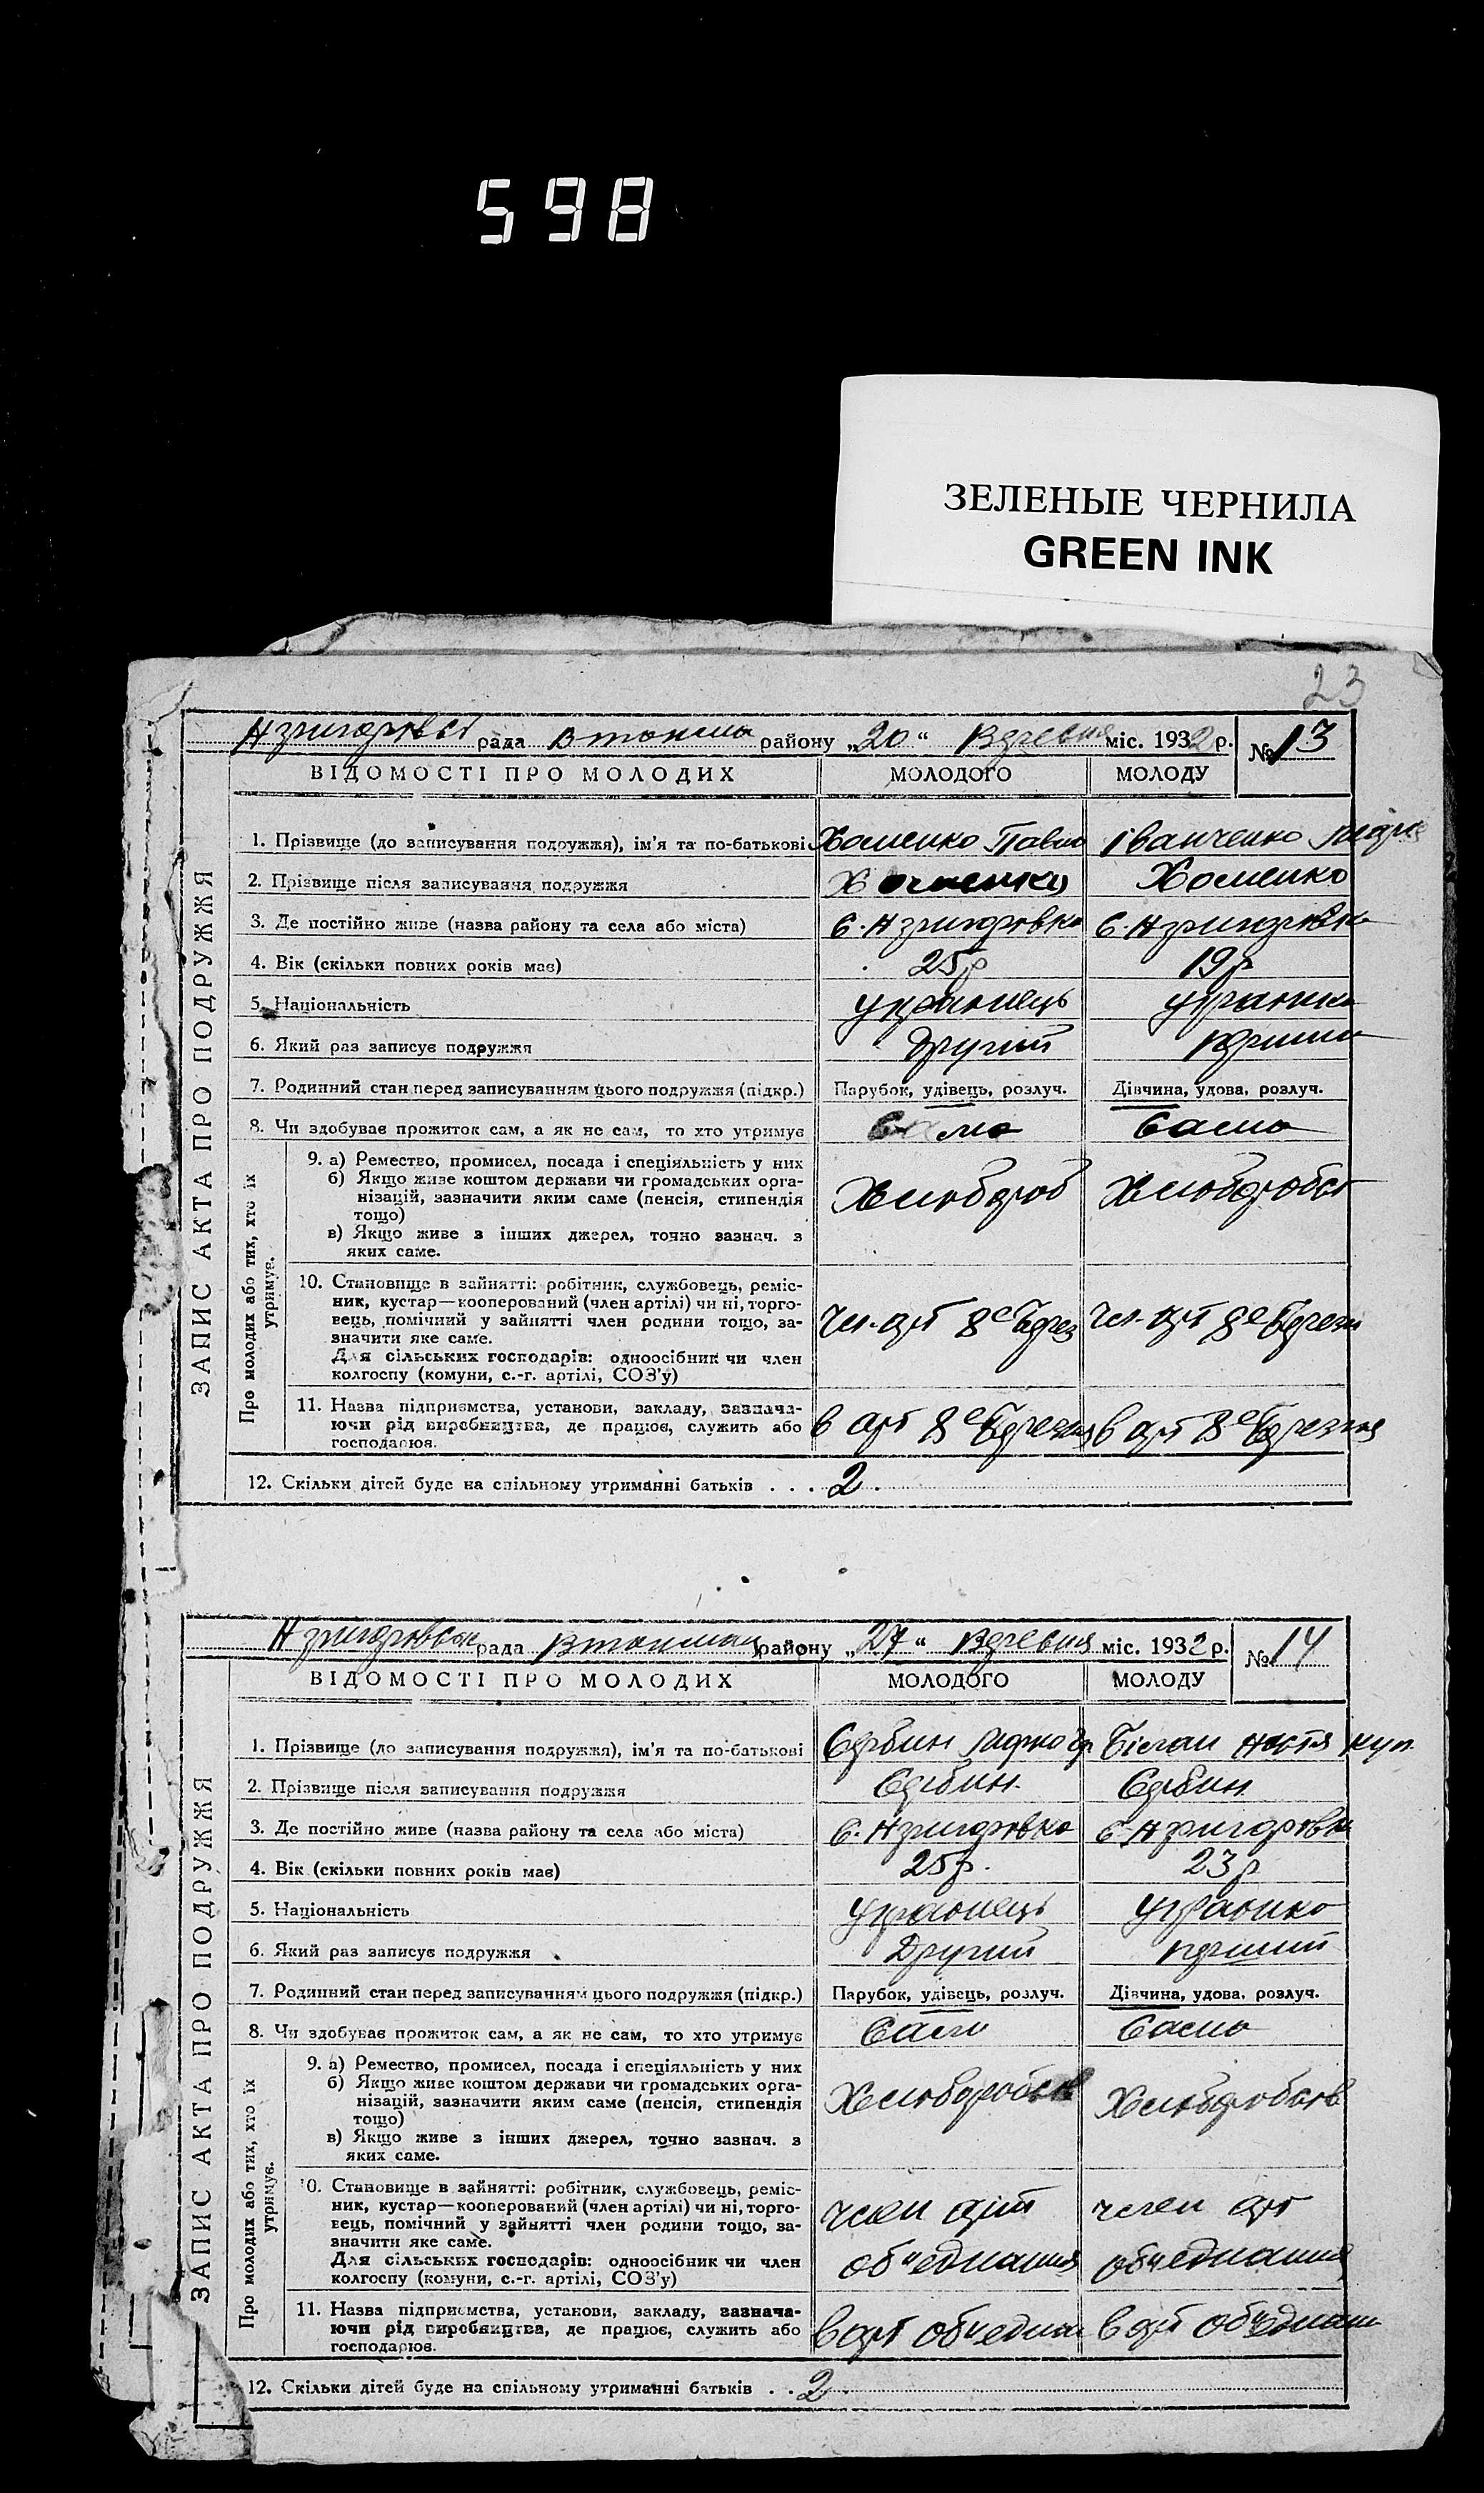 598
ЗЕЛЕНЫЕ ЧЕРНИЛА
GREEN INK
23
рада району „20“ міс. 1932 р. № 13
ВІДОМОСТІ ПРО МОЛОДИХ МОЛОДОГО МОЛОДУ
ЗАПИС АКТА ПРО ПОДРУЖЖЯ
1. Прізвище (до записування подружжя), ім'я та по-батькові Хоменко Павло Іванченко Марія
2. Прізвище після записування подружжя Хоменко Хоменко
3. Де постійно живе (назва району та села або міста) с. Н григоровка с. Н григоровка
4. Вік (скільки повних років має) 25 р 19 р
5. Національність українець українка
6. Який раз записує подружжя Другий перший
7. Родинний стан перед записуванням цього подружжя (підкр.) Парубок, удівець, розлуч. Дівчина, удова, розлуч.
8. Чи здобуває прожиток сам, а як не сам, то хто утримує Само Само
Про молодих або тих, хто їх утримує.
9. а) Ремество, промисел, посада і спеціяльність у них
б) Якщо живе коштом держави чи громадських орга-
нізацій, зазначити яким саме (пенсія, стипендія
тощо)
в) Якщо живе з інших джерел, точно зазнач. з
яких саме.
Хлібороб
10. Становище в зайнятті: робітник, службовець, реміс-
ник, кустар—кооперований (член артілі) чи ні, торго-
вець, помічний у зайнятті член родини тощо, за-
значити яке саме.
Для сільських господарів: одноосібник чи член
колгоспу (комуни, с.-г. артілі, СОЗ'у)
Чл. арт 8е Берез Чл. арт 8е Березн
11. Назва підприємства, установи, закладу, зазнача-
ючи рід виробництва, де працює, служить або
господарює.
в арт 8е Березня в арт 8е Березня
12. Скільки дітей буде на спільному утриманні батьків . . . 2
рада району „27“ міс. 1932 р. № 14
ВІДОМОСТІ ПРО МОЛОДИХ МОЛОДОГО МОЛОДУ
ЗАПИС АКТА ПРО ПОДРУЖЖЯ
1. Прізвище (до записування подружжя), ім'я та по-батькові Сербин Марко Настя
2. Прізвище після записування подружжя Сербин Сербин
3. Де постійно живе (назва району та села або міста) с. Н григоровка с. Н григоровка
4. Вік (скільки повних років має) 25 р. 23 р
5. Національність українець українка
6. Який раз записує подружжя Другий перший
7. Родинний стан перед записуванням цього подружжя (підкр.) Парубок, удівець, розлуч. Дівчина, удова, розлуч.
8. Чи здобуває прожиток сам, а як не сам, то хто утримує Само Само
Про молодих або тих, хто їх утримує.
9. а) Ремество, промисел, посада і спеціяльність у них
б) Якщо живе коштом держави чи громадських орга-
нізацій, зазначити яким саме (пенсія, стипендія
тощо)
в) Якщо живе з інших джерел, точно зазнач. з
яких саме.
10. Становище в зайнятті: робітник, службовець, реміс-
ник, кустар—кооперований (член артілі) чи ні, торго-
вець, помічний у зайнятті член родини тощо, за-
значити яке саме.
Для сільських господарів: одноосібник чи член
колгоспу (комуни, с.-г. артілі, СОЗ'у)
член арт член арт
об"єднання об"єднання
11. Назва підприємства, установи, закладу, зазнача-
ючи рід виробництва, де працює, служить або
господарює.
в арт об"єднан в арт об"єднан
12. Скільки дітей буде на спільному утриманні батьків . . 2